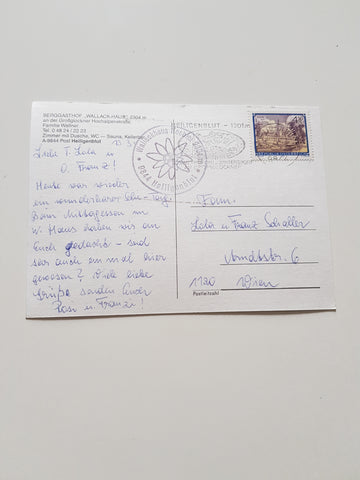 BERGGASTHOF „WALLACK-HAUS“ 2304 m
an der Großglockner Hochalpenstraße
Familie Wallner
Tel. 0 48 24 / 22 23
Zimmer mit Dusche, WC — Sauna, Kellerbar
A-9844 Post Heiligenblut
HEILIGENBLUT - 1301 m
9844 Heiligenblut
Liebe T. Lola u
O. Franz!
Heute war wieder
ein wunderbarer
Beim Mittagessen im
W. Haus haben wir an
Euch gedacht - seid
wir auch einmal hier
gewesen? Viele liebe
Grüße senden Euch
Rosi u. Franzi!
Fam.
Lola u Franz Schaller
Arndtstr. 6
1120 Wien
Postleitzahl